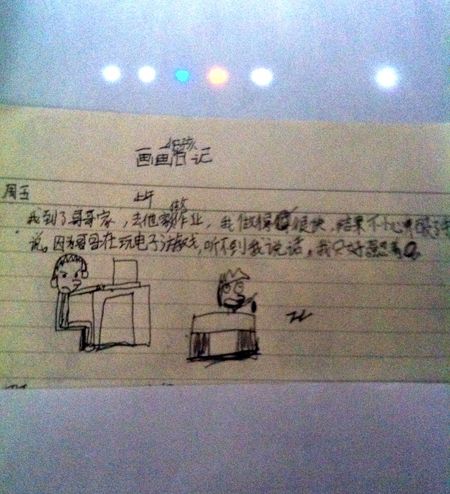 画画日记
周五
上午 做
我到了哥哥家，去他家作业，我做得很快，结果不小心
说。因为哥哥在玩电子游戏，听不到我说话，我只好忍着。